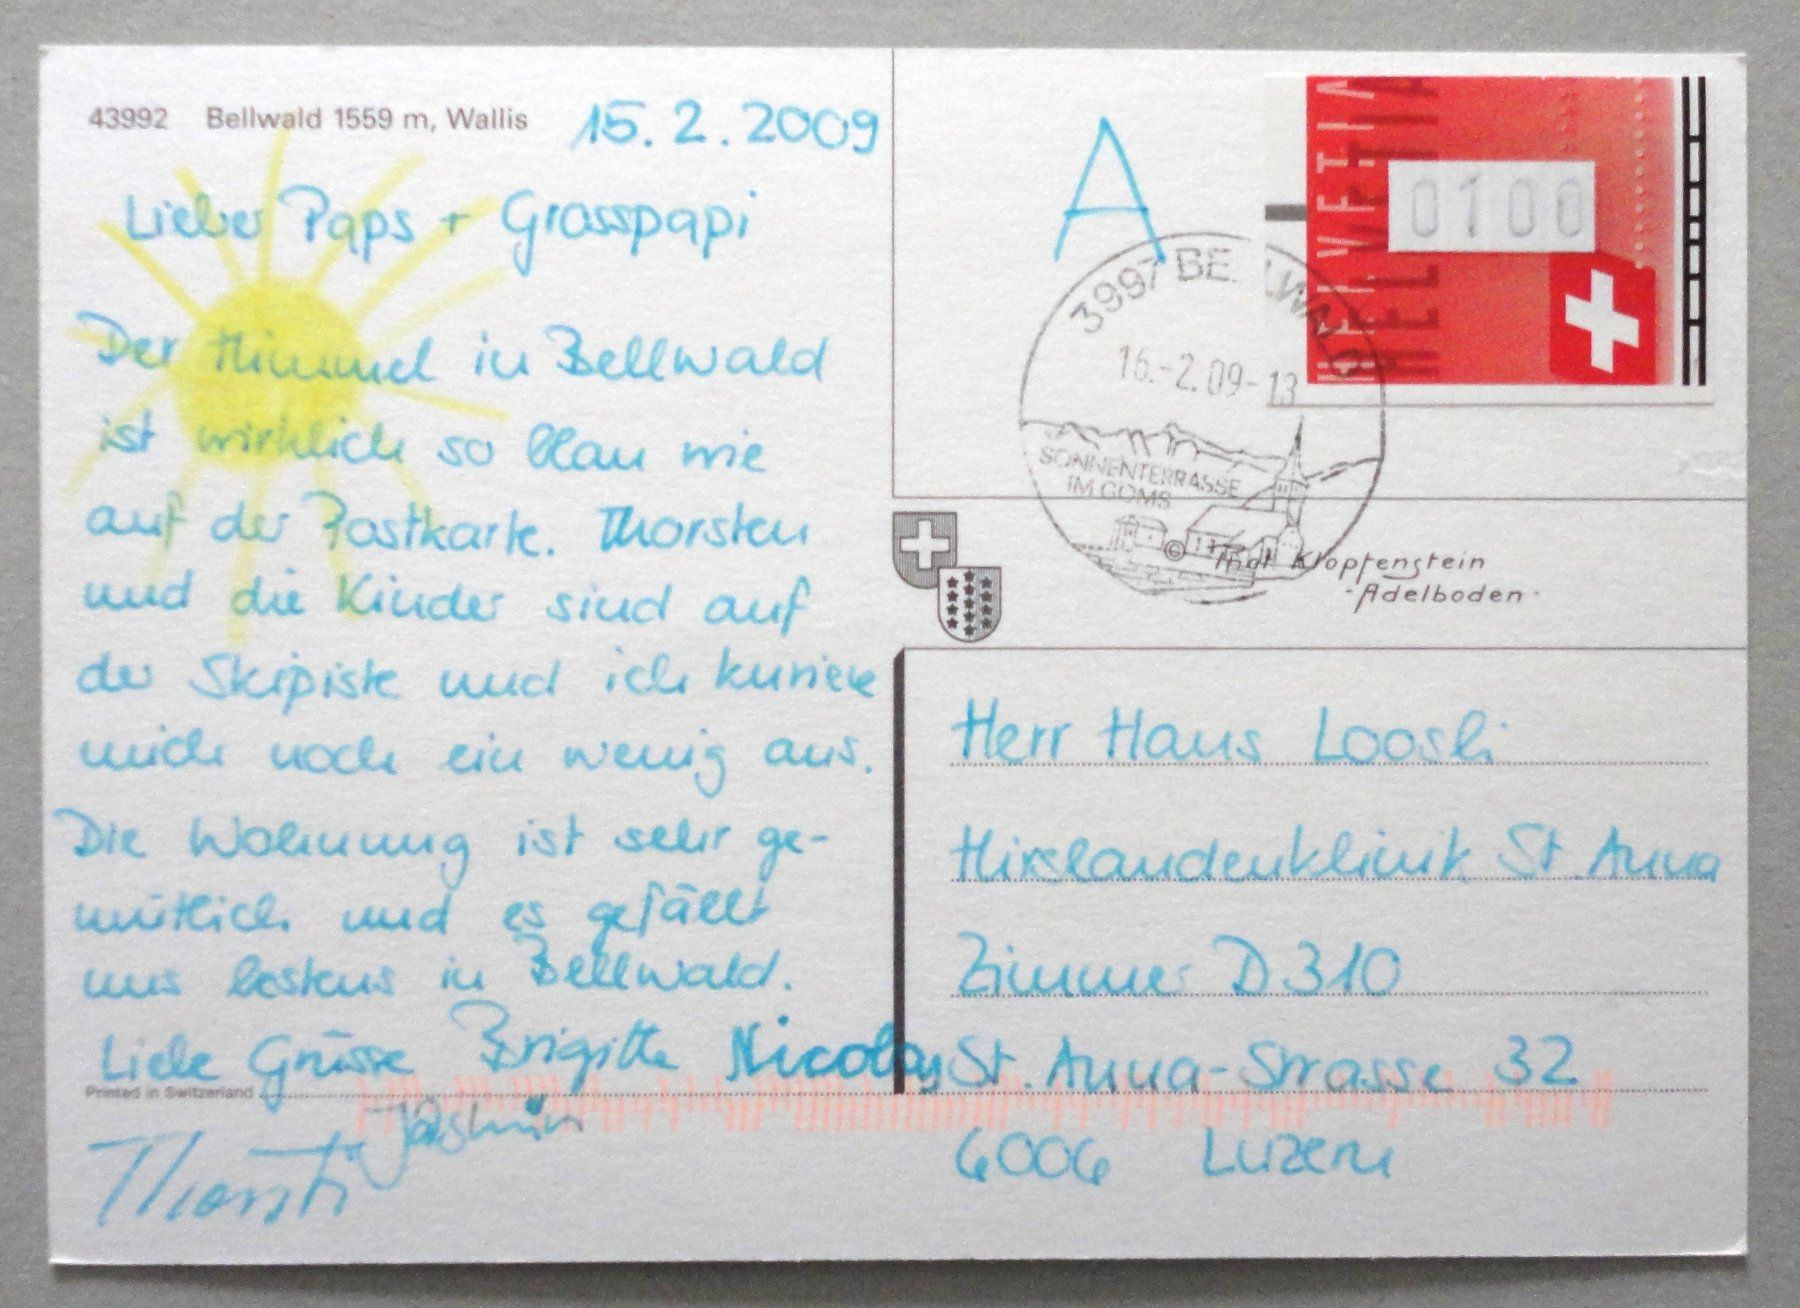 43992 Bellwald 1559 m, Wallis
15.2.2009
Lieber Paps + Grosspapi
Der Himmel in Bellwald
ist wirklich so blau wie
auf der Postkarte. Thorsten
und die Kinder sind auf
der Skipiste und ich kuriere
mich noch ein wenig aus.
Die Wohnung ist sehr ge-
mütlich und es gefällt
uns bestens in Bellwald.
Liebe Grüsse Brigitte Nicolas
Printed in Switzerland
Jasmin
Thorsten
A
HELVETIA
HELVETIA
0100
3997 BELLWALD
16.-2.09-13
SONNENTERRASSE
IM GOMS
© Thdl Klopfenstein
-Adelboden-
Herr Hans Loosli
Hirslandenklinik St. Anna
Zimmer D 310
St. Anna-Strasse 32
6006 Luzern